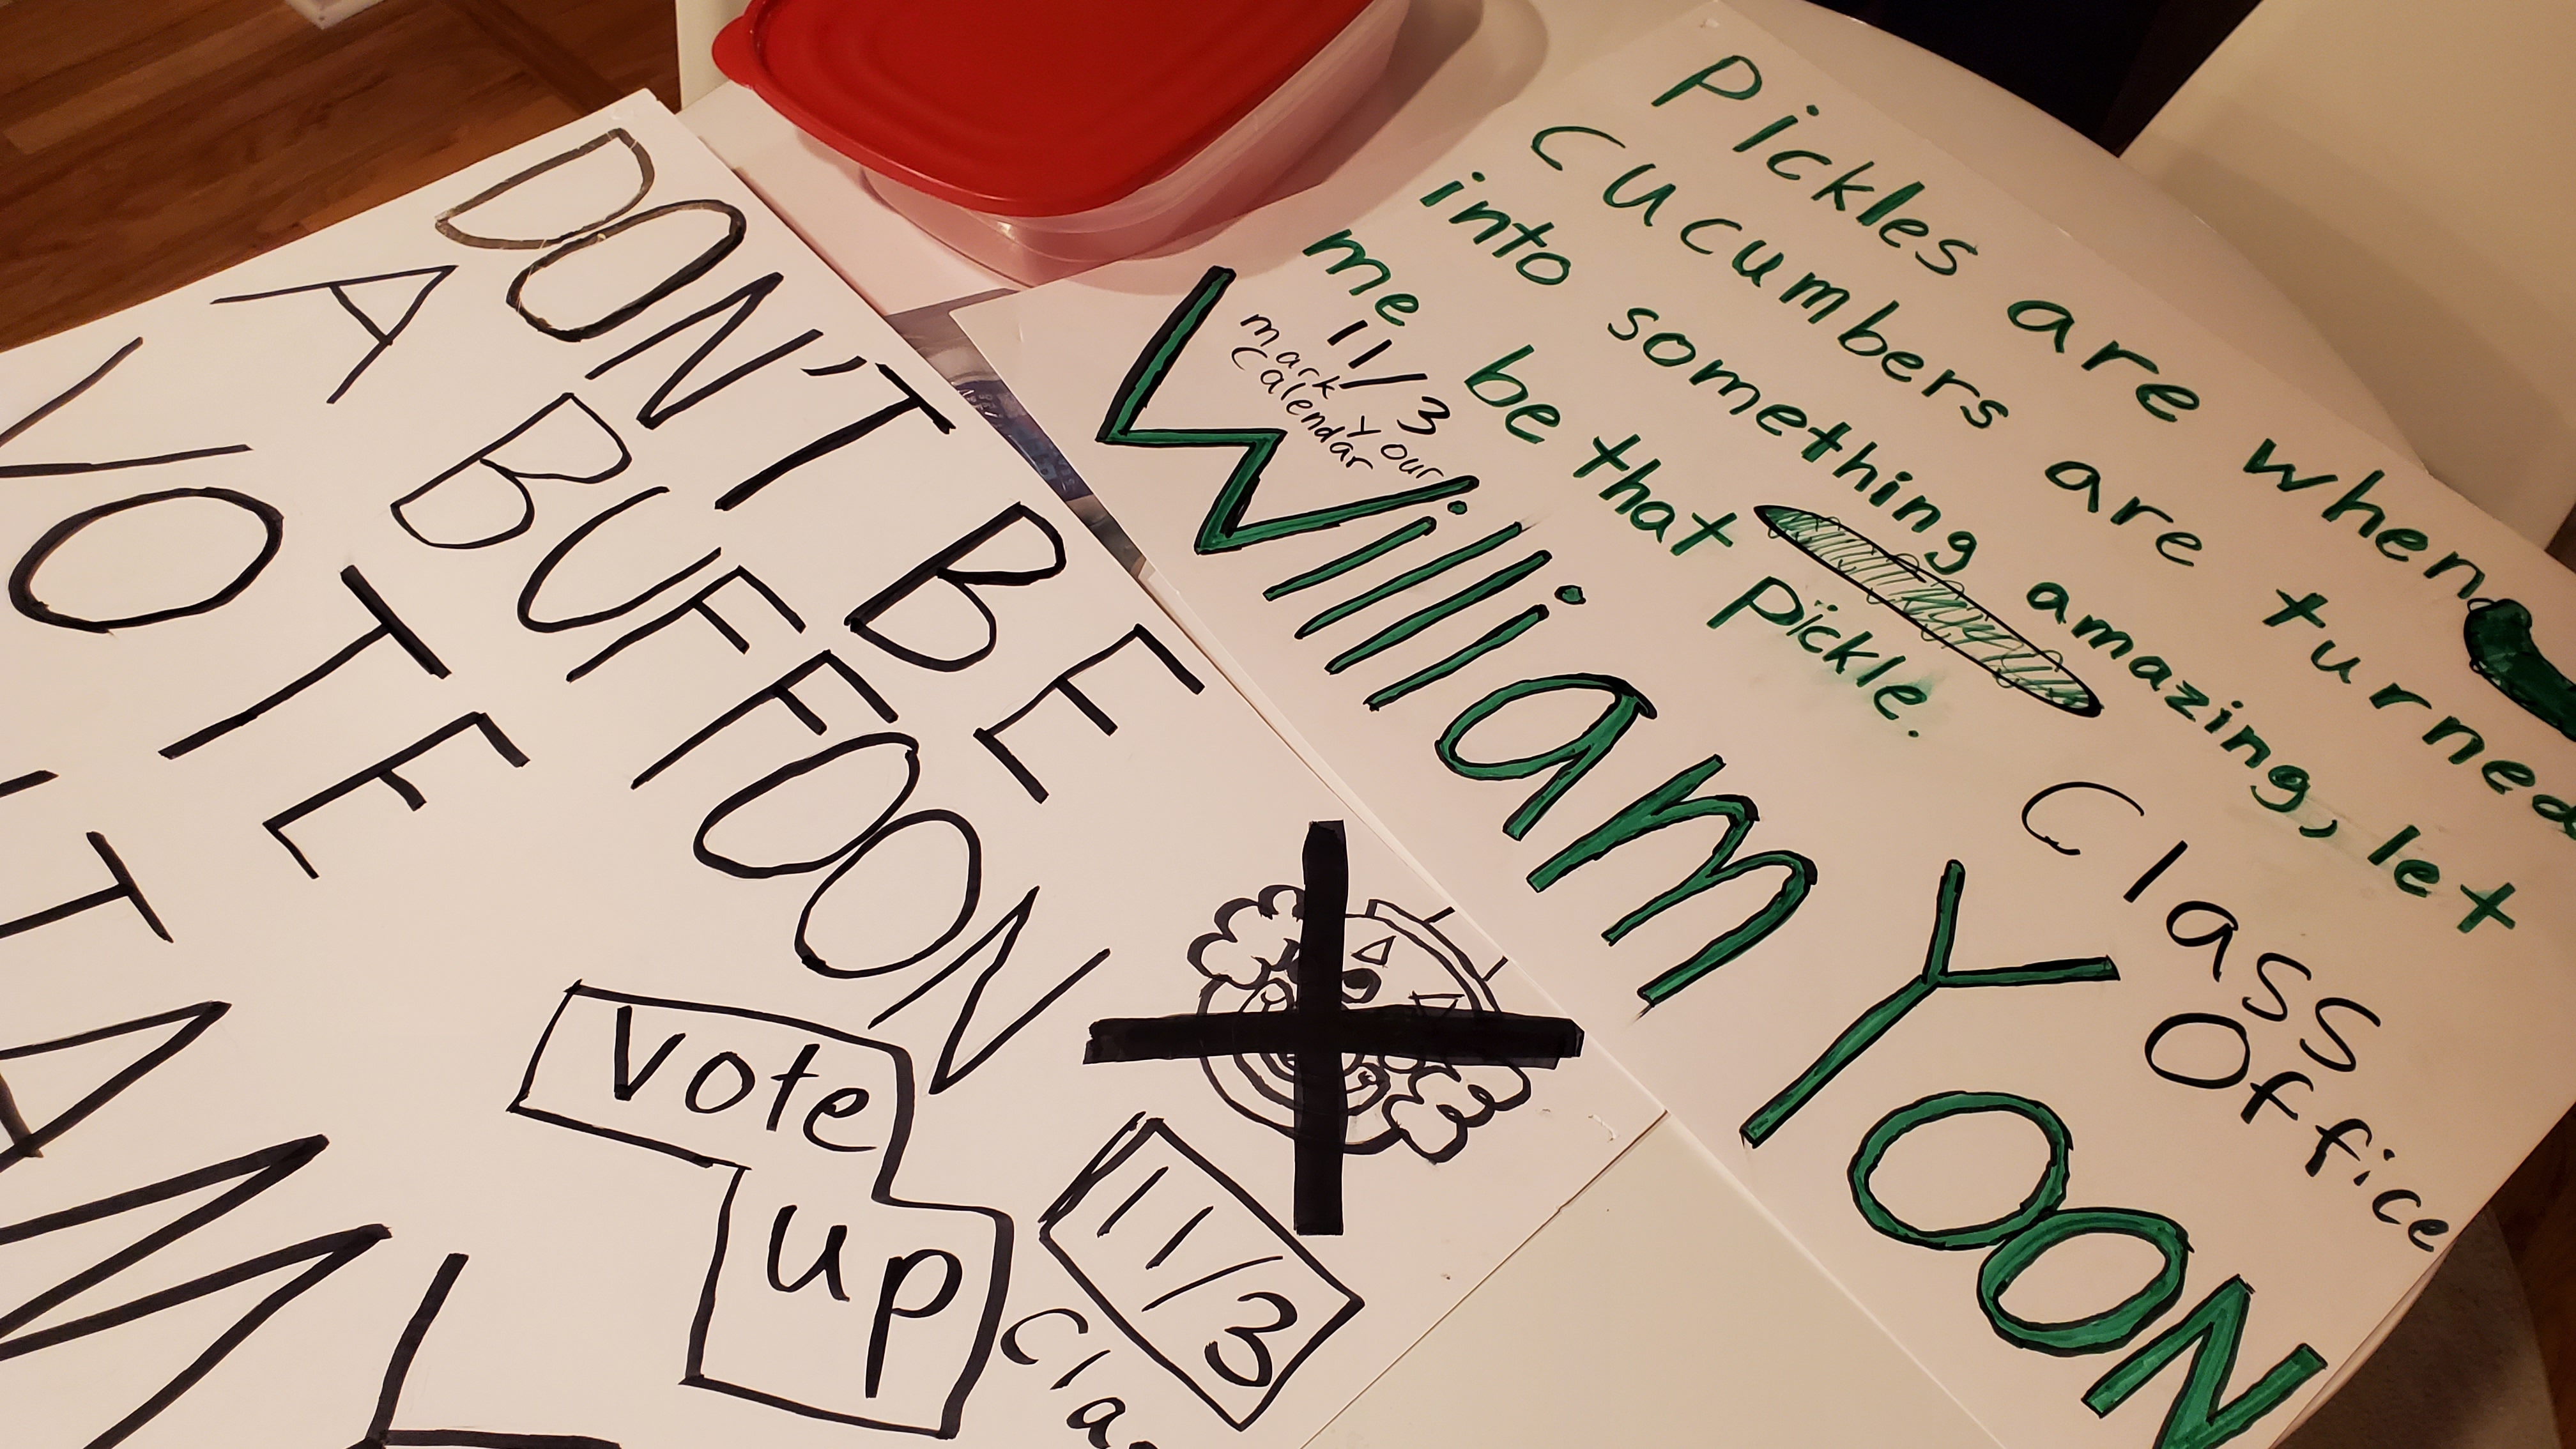 DON'T BE
A BUFFOON
VOTE
vote
up
11/3
Pickles are when
cucumbers are turned
into something amazing, let
me be that pickle.
11/3
mark your
Calendar
William Yoon
Class
Office